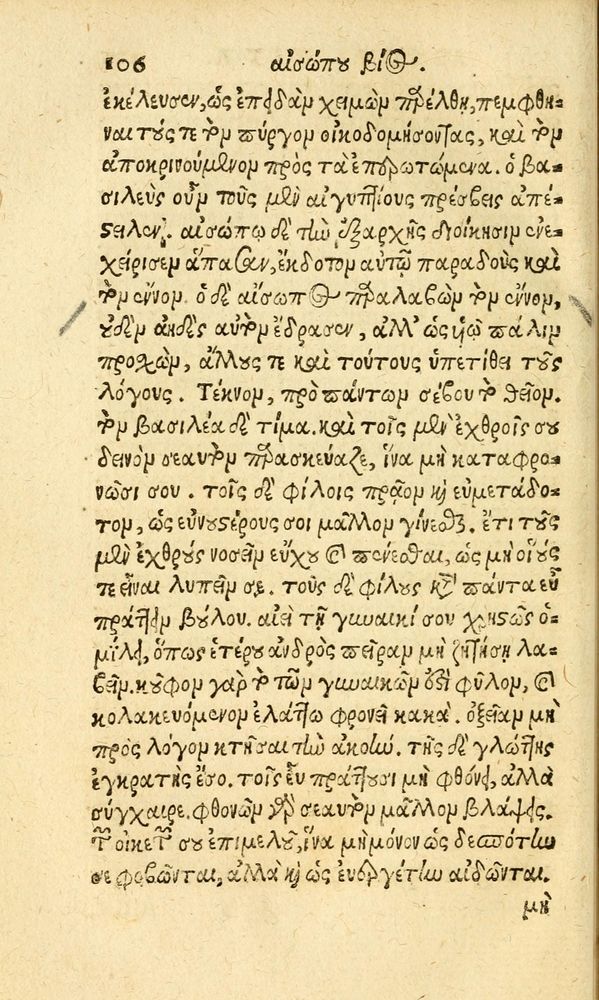 106 αἰσώπου βίος.
ἐκέλευσεν, ὡς ἐπειδὰν χειμὼν παρέλθῃ, πεμφθῆ-
ναι τούς τε τὸν πύργον οἰκοδομήσοντας, καὶ τὸν
ἀποκρινούμενον πρὸς τὰ ἐπερωτώμενα. ὁ βα-
σιλεὺς οὖν τοὺς μὲν αἰγυπτίους πρέσβεις ἀπέ-
στειλεν. αἰσώπῳ δὲ τὴν ἐξαρχῆς διοίκησιν ἐνε-
χείρισεν ἅπασαν, ἔκδοτον αὐτῷ παραδοὺς καὶ
τὸν ἔννον. ὁ δὲ αἴσωπος παραλαβὼν τὸν ἔννον,
οὐδὲν ἀηδὲς αὐτὸν ἔδρασεν, ἀλλ' ὡς υἱῷ πάλιν
προσχὼν, ἄλλους τε καὶ τούτους ὑπετίθει τοὺς
λόγους. Τέκνον, πρὸ πάντων σέβου τὸ θεῖον.
τὸν βασιλέα δὲ τίμα. καὶ τοῖς μὲν ἐχθροῖς σου
δεινὸν σεαυτὸν παρασκεύαζε, ἵνα μὴ καταφρο-
νῶσί σου. τοῖς δὲ φίλοις πρᾶον καὶ εὐμετάδο-
τον, ὡς εὐνουστέρους σοι μᾶλλον γίνεσθαι. ἔτι τοὺς
μὲν ἐχθροὺς νοσεῖν εὔχου καὶ πένεσθαι, ὡς μὴ οἵους
τε εἶναι λυπεῖν σε. τοὺς δὲ φίλους κατὰ πάντα εὖ
πράττειν βούλου. αἰεὶ τῇ γυναικί σου χρηστῶς ὁ-
μίλει, ὅπως ἑτέρου ἀνδρὸς πεῖραν μὴ ζητήσῃ λα-
βεῖν. κοῦφον γὰρ τὸ τῶν γυναικῶν ἐστὶ φῦλον, καὶ
κολακευόμενον ἐλάττω φρονεῖ κακά. ὀξεῖαν μὲν
πρὸς λόγον κτῆσαι τὴν ἀκοήν. τῆς δὲ γλώττης
ἐγκρατὴς ἔσο. τοῖς εὖ πράττουσι μὴ φθόνει, ἀλλὰ
σύγχαιρε. φθονῶν γὰρ σεαυτὸν μᾶλλον βλάψεις.
τῶν οἰκετῶν σου ἐπιμελοῦ, ἵνα μὴ μόνον ὡς δεσπότην
σε φοβῶνται, ἀλλὰ καὶ ὡς εὐεργέτην αἰδῶνται.
μὴ